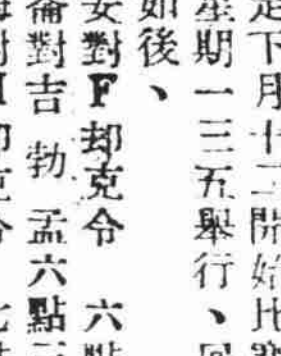 下月十二開始比
星期一三五舉行、回
如後、
安對F却克令　六點
倫對吉勃　孟六點三
對